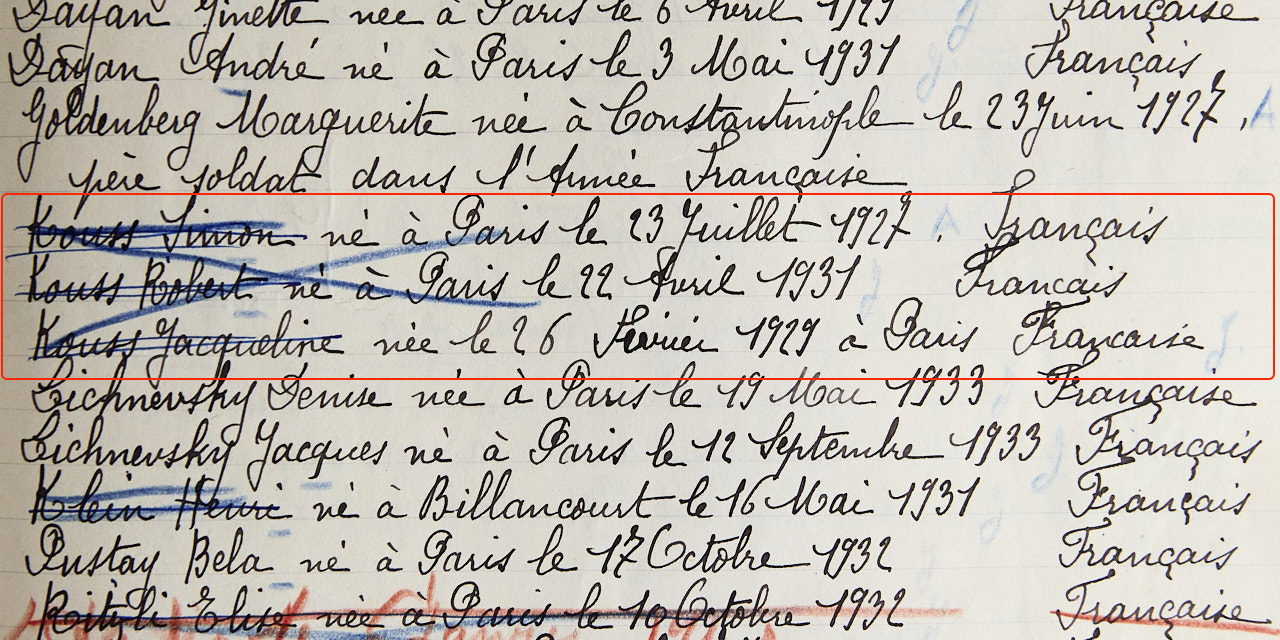 Dayan Ginette née à Paris le 6 Avril 1929 Française
Dayan André né à Paris le 3 Mai 1931 Français
Goldenberg Marguerite née à Constantinople le 23 Juin 1927. A
père soldat dans l'Armée Française
Kouss Simon né à Paris le 23 Juillet 1927. A Français
Kouss Robert né à Paris le 22 Avril 1931 Francais
Kouss Jacqueline née le 26 Février 1929 à Paris Francaise
Lichnevsky Denise née à Paris le 19 Mai 1933 Française
Lichnevsky Jacques né à Paris le 12 Septembre 1933 Français
Klein Henri né à Billancourt le 16 Mai 1931 Français
Pustay Bela né à Paris le 17 Octobre 1932 Français
Elise née à Paris le 10 Octobre 1932 Française